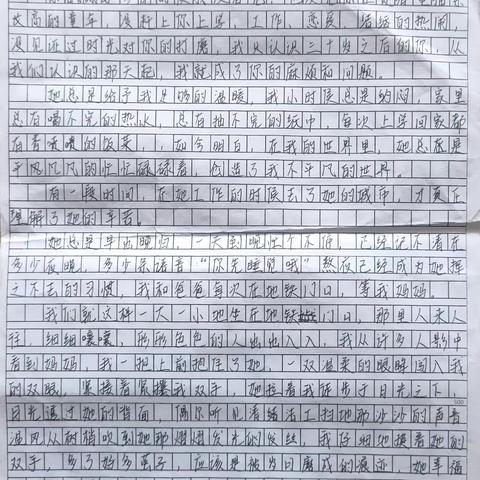 故高的童年，没赶上你上学、工作、恋爱、结婚的热闹，
没见证过时光对你的打磨，我只认识三十岁之后的你，从
我们认识的那天起，我就成了你的麻烦和问题。
她总是给予我足够的温暖，我小时候总是纳闷，家里
总有喝不完的热水，总有抽不完的纸巾，每次上学回家都
有香喷喷的饭菜，，如今明白，在我的世界里，她总是
平凡凡凡的忙忙碌碌着，创造了我不平凡的世界。
有一段时间，在她工作的时候去了她的城市，才真正
理解了她的辛苦。
她总是早出晚归，一天到晚忙个不停，已经记不清在
多少夜晚，多少条语音“你先睡觉哦”熬夜已经成为她挥
之不去的习惯，我和爸爸每次在地铁门口，等我妈妈。
我们就这样一大一小地坐在地铁门口，那里人来人
往，细细嚷嚷，形形色色的人出出入入，我从许多人影中
看到妈妈，我一把上前抱住了她，一双温柔的眼眸闯入我
的双眼，紧接着紧攥我双手，她拉着我徒步于日光之下，
日光透过她的背面，偶尔听见清洁活工扫地那沙沙的声音
温风从树梢吹到她那熠熠发光的发丝，我仔细地摸着她的
双手，多了好多茧子，应该是被岁月磨成的痕迹，她幸福